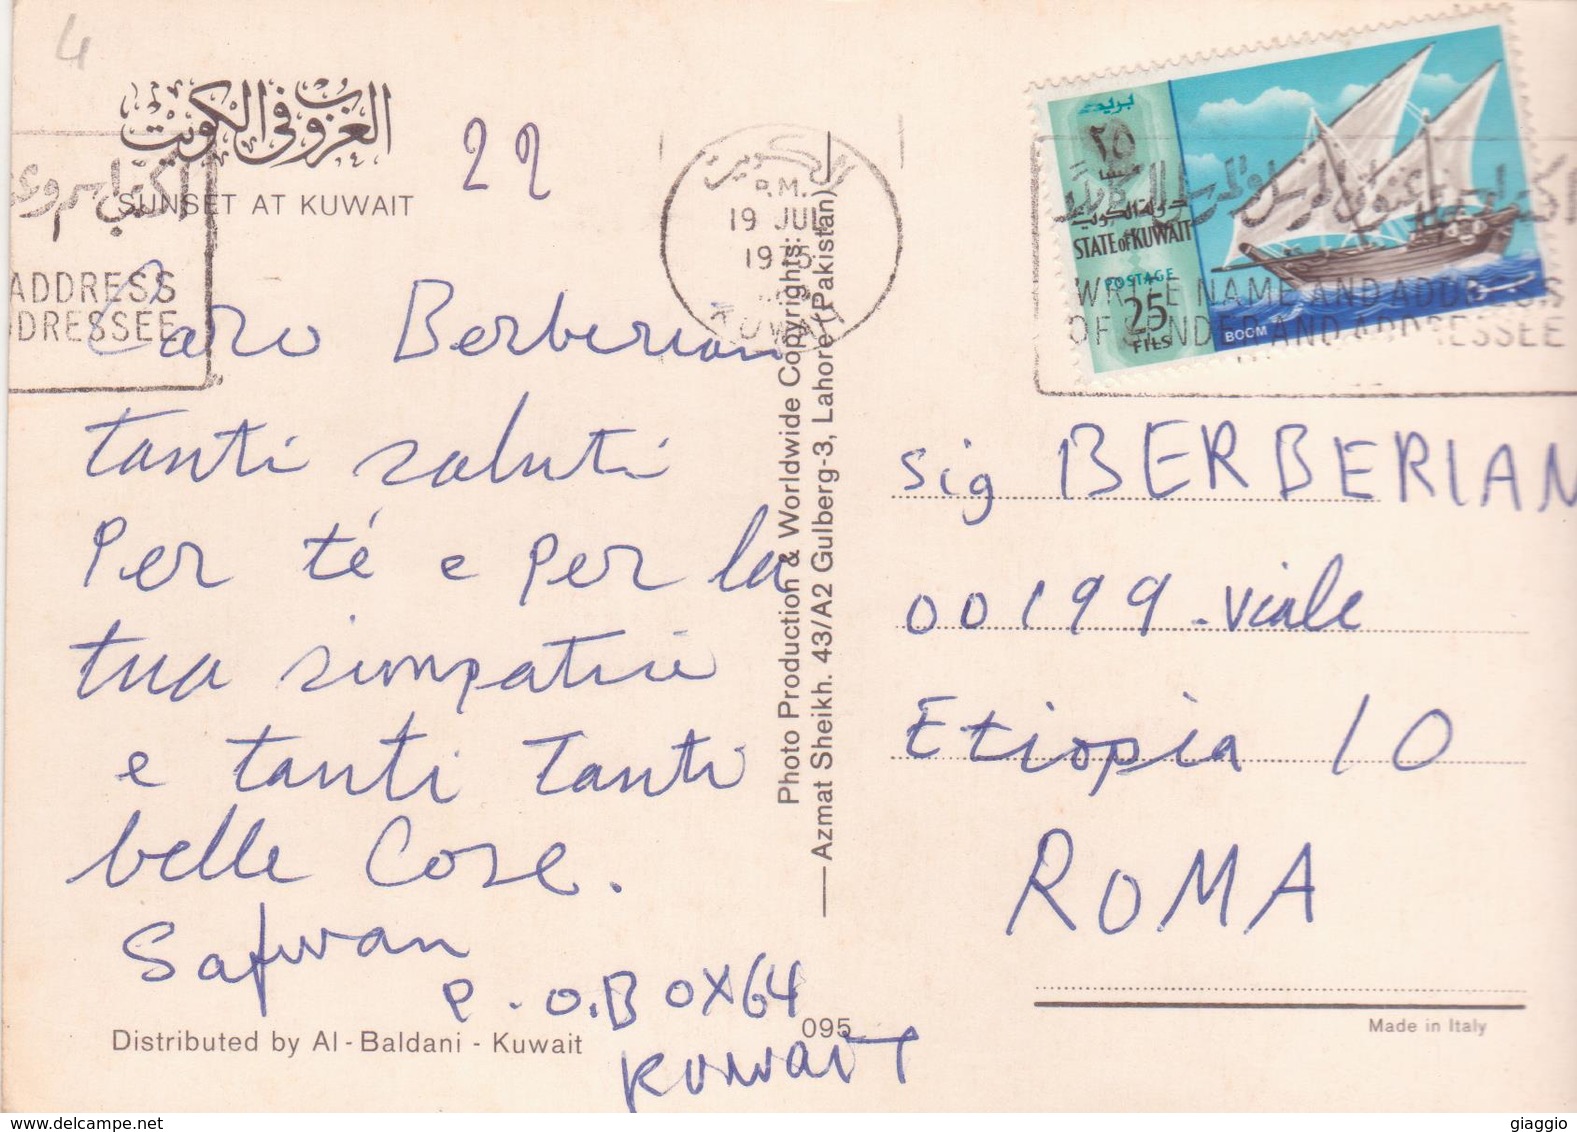 4
الغروب في الكويت
SUNSET AT KUWAIT
22
ADDRESS
DRESSEE
الكويت
P.M.
19 JUL
1975
KUWAIT
بريد
٢٥
فلسا
دولة الكويت
STATE OF KUWAIT
POSTAGE
25
FILS
BOOM
WRITE NAME AND ADDRESS
OF SENDER AND ADDRESSEE
Caro Berberian
tanti saluti
Per té e per la
tua simpatie
e tanti Tanti
belle Cose.
Safwan
P.O.BOX 64
Kuwait
Distributed by Al-Baldani - Kuwait
095
Photo Production & Worldwide Copyrights:
Azmat Sheikh. 43/A2 Gulberg-3, Lahore (Pakistan)
sig BERBERIAN
00199 - Viale
Etiopia 10
ROMA
Made in Italy
delcampe.net
giaggio